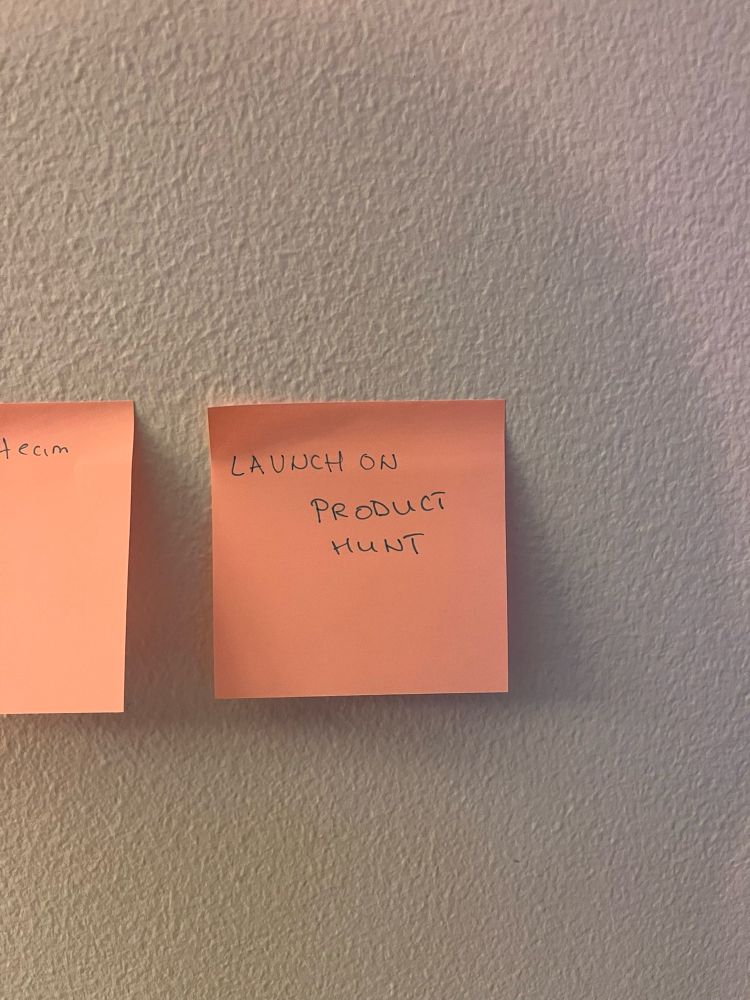 team
LAUNCH ON
PRODUCT
HUNT